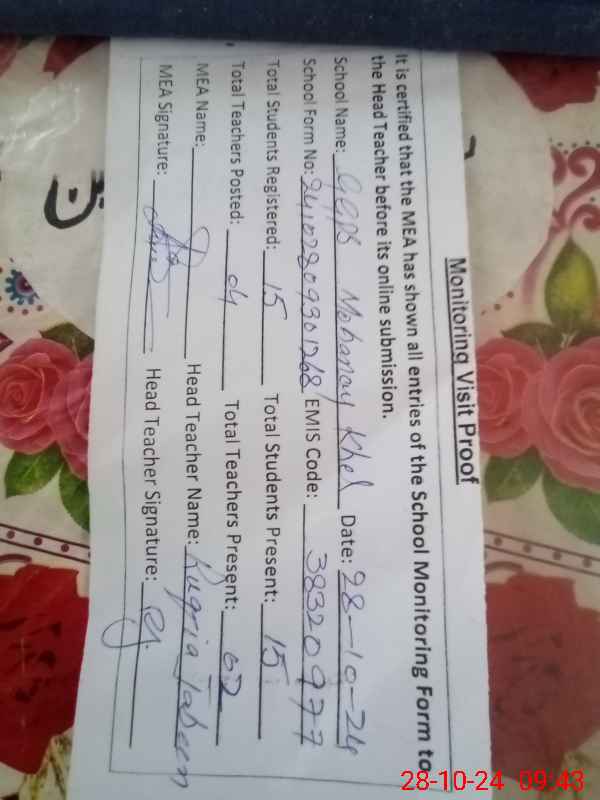 Monitoring Visit Proof
It is certified that the MEA has shown all entries of the School Monitoring Form to
the Head Teacher before its online submission.
School Name: GGPS Mohanay Khel Date: 28-10-24
School Form No: 24102809301268 EMIS Code: 38320977
Total Students Registered: 15 Total Students Present: 15
Total Teachers Posted: 04 Total Teachers Present: 02
MEA Name: Head Teacher Name: Ruqria Jabeen
MEA Signature: Head Teacher Signature: RJ
28-10-24 09:43